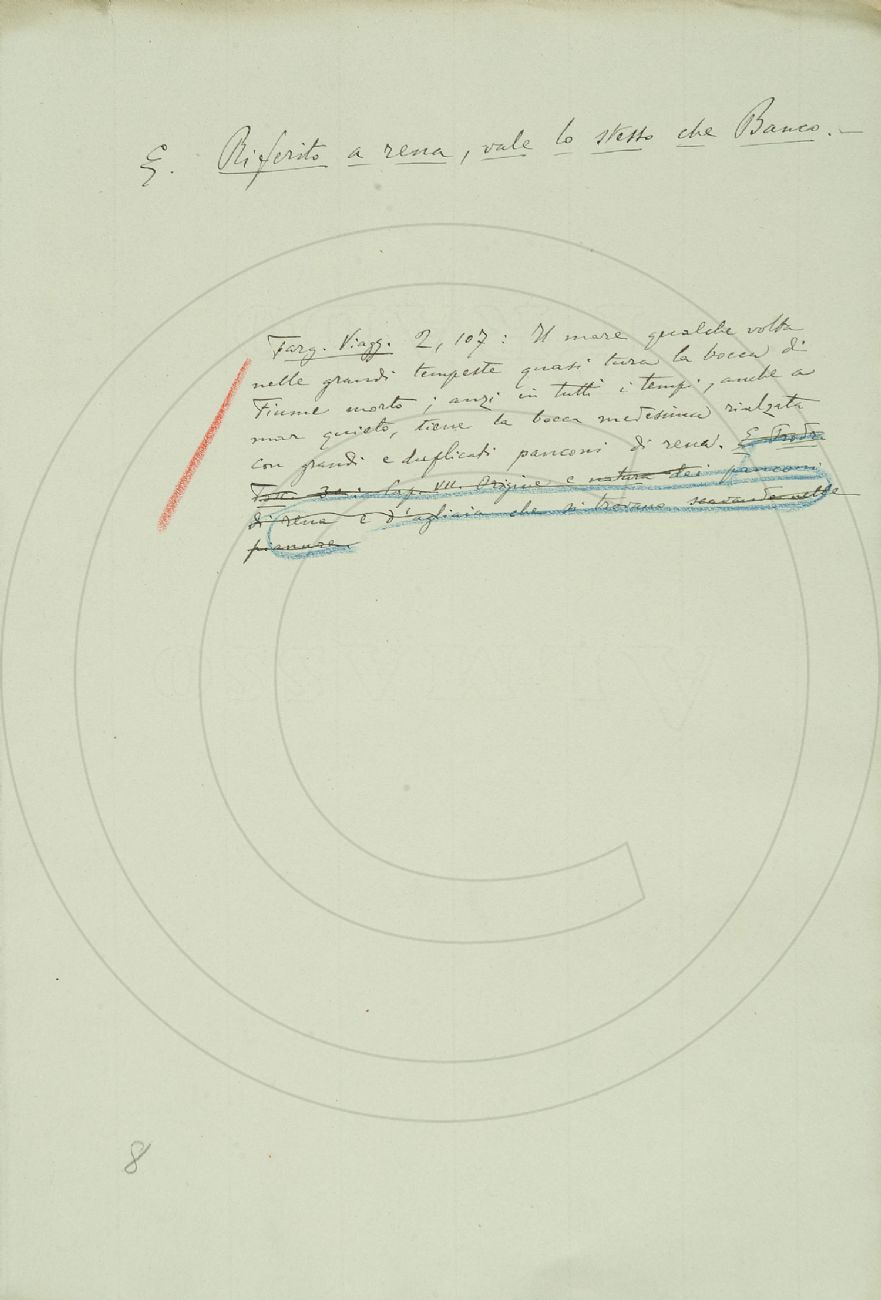 §. Riferito a rena, vale lo stesso che Banco. —
Targ. Viagg. 2, 107: Il mare qualche volta
nelle grandi tempeste quasi tura la bocca di
Fiume morto; anzi in tutti i tempi, anche a
mar quieto, tiene la bocca medesima rialzata
con grandi e duplicati panconi di rena. E Prodr.
Tosc. Cap. VII. Origine e natura dei panconi
di rena e d'agliaia che si trovano scavando nelle
pianure.
8